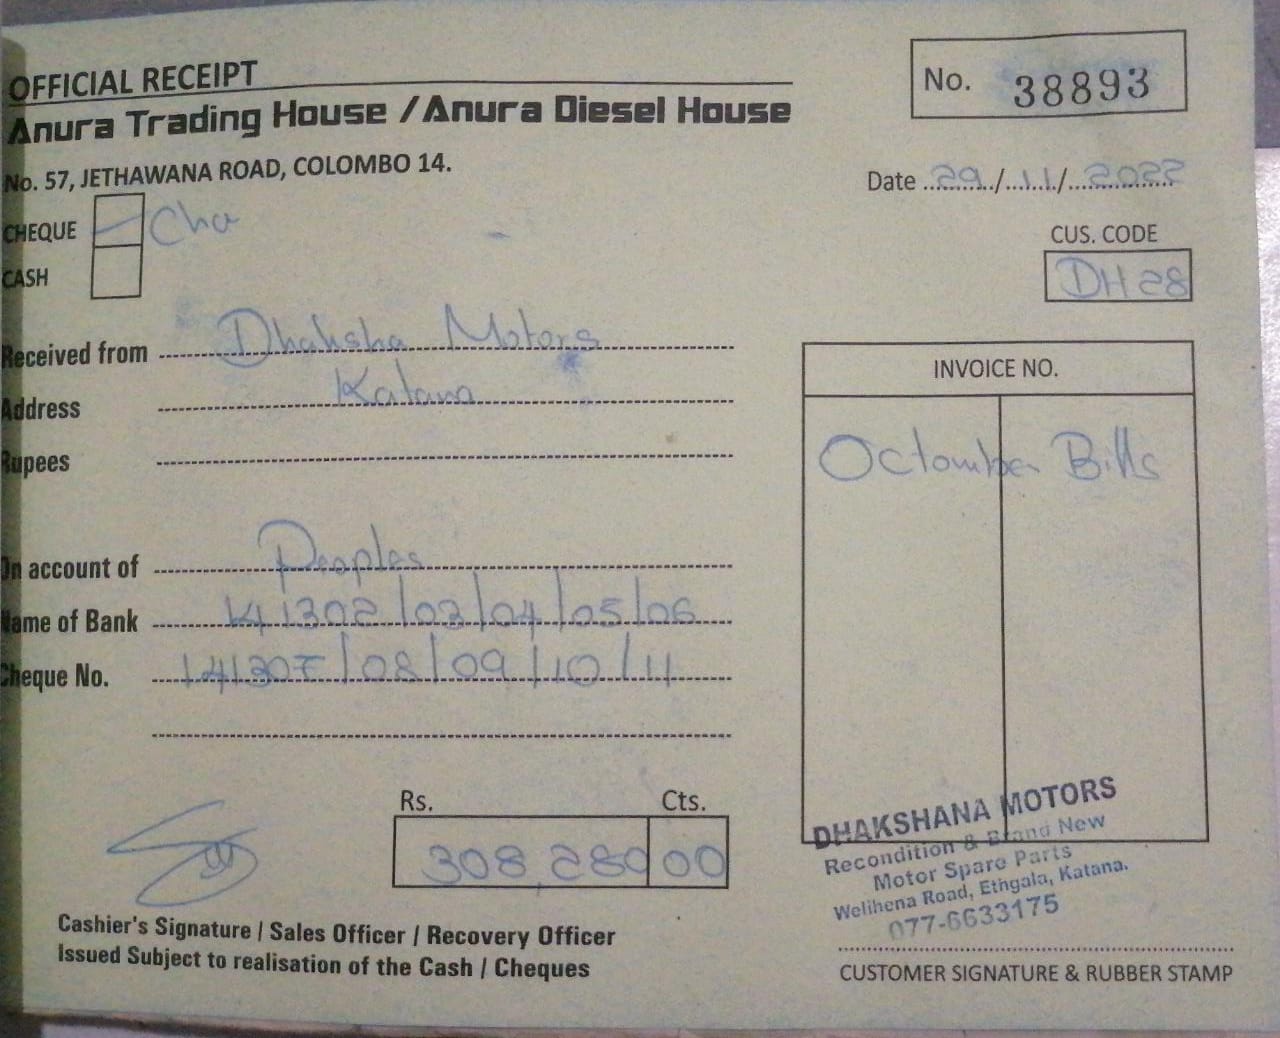 OFFICIAL RECEIPT
Anura Trading House / Anura Diesel House
No. 57, JETHAWANA ROAD, COLOMBO 14.
No. 38893
Date 29/11/2022
CUS. CODE
DH 28
CHEQUE
CASH
Received from Dhaksha Motors
Address Katana
Rupees
On account of Peoples
Name of Bank 141302/03/04/05/06
Cheque No. 141307/08/09/10/11
INVOICE NO.
Octomber Bills
Rs. Cts.
308,280 00
Cashier's Signature / Sales Officer / Recovery Officer
Issued Subject to realisation of the Cash / Cheques
DHAKSHANA MOTORS
Recondition & Brand New
Motor Spare Parts
Welihena Road, Ethgala, Katana.
077-6633175
CUSTOMER SIGNATURE & RUBBER STAMP